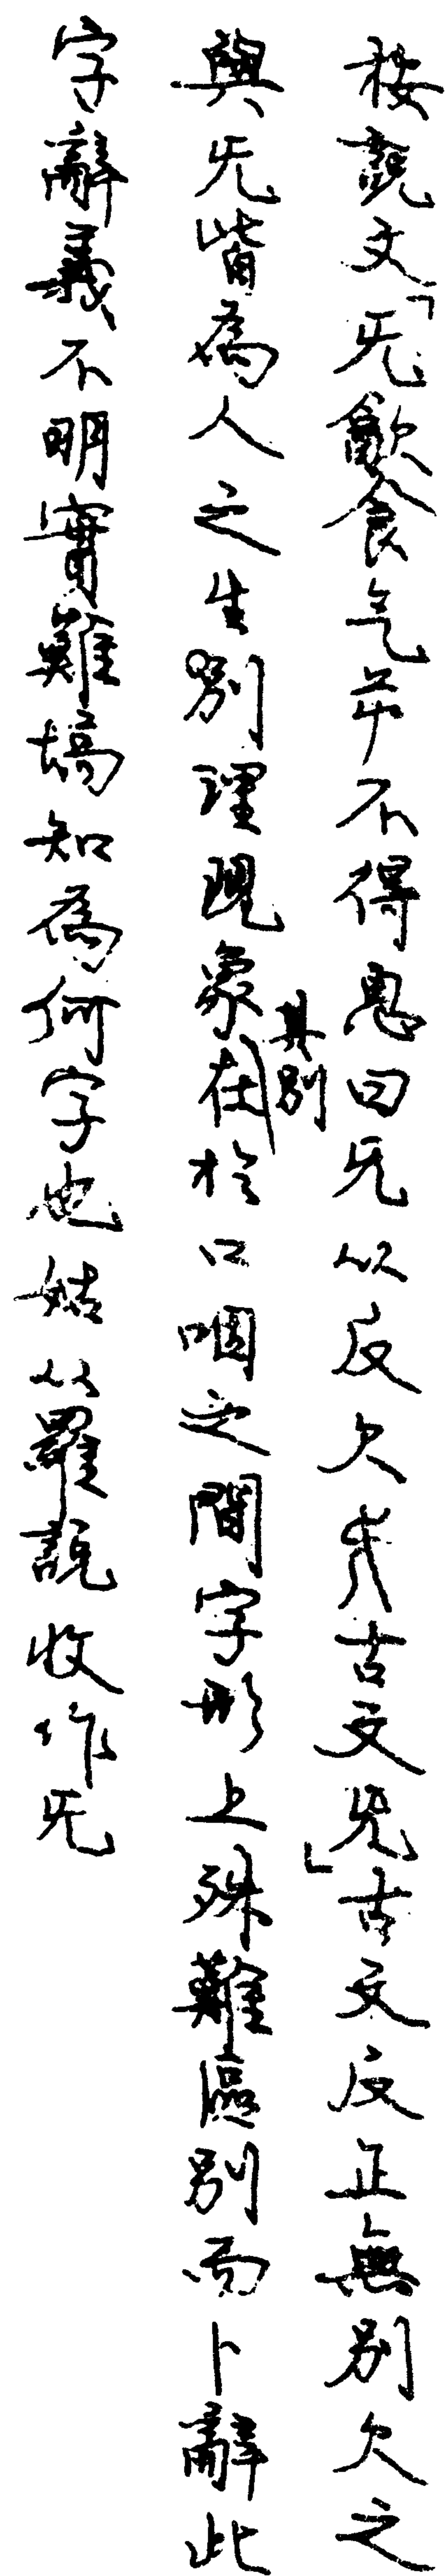 按說文「旡歓食气屰不得息曰旡从反欠𣄫古文旡」古文反正無別欠之
與旡皆為人之生別理現象其別在於口咽之間字形上殊難區別而卜辭此
字辭義不明實難塙知為何字也姑从羅說收作旡